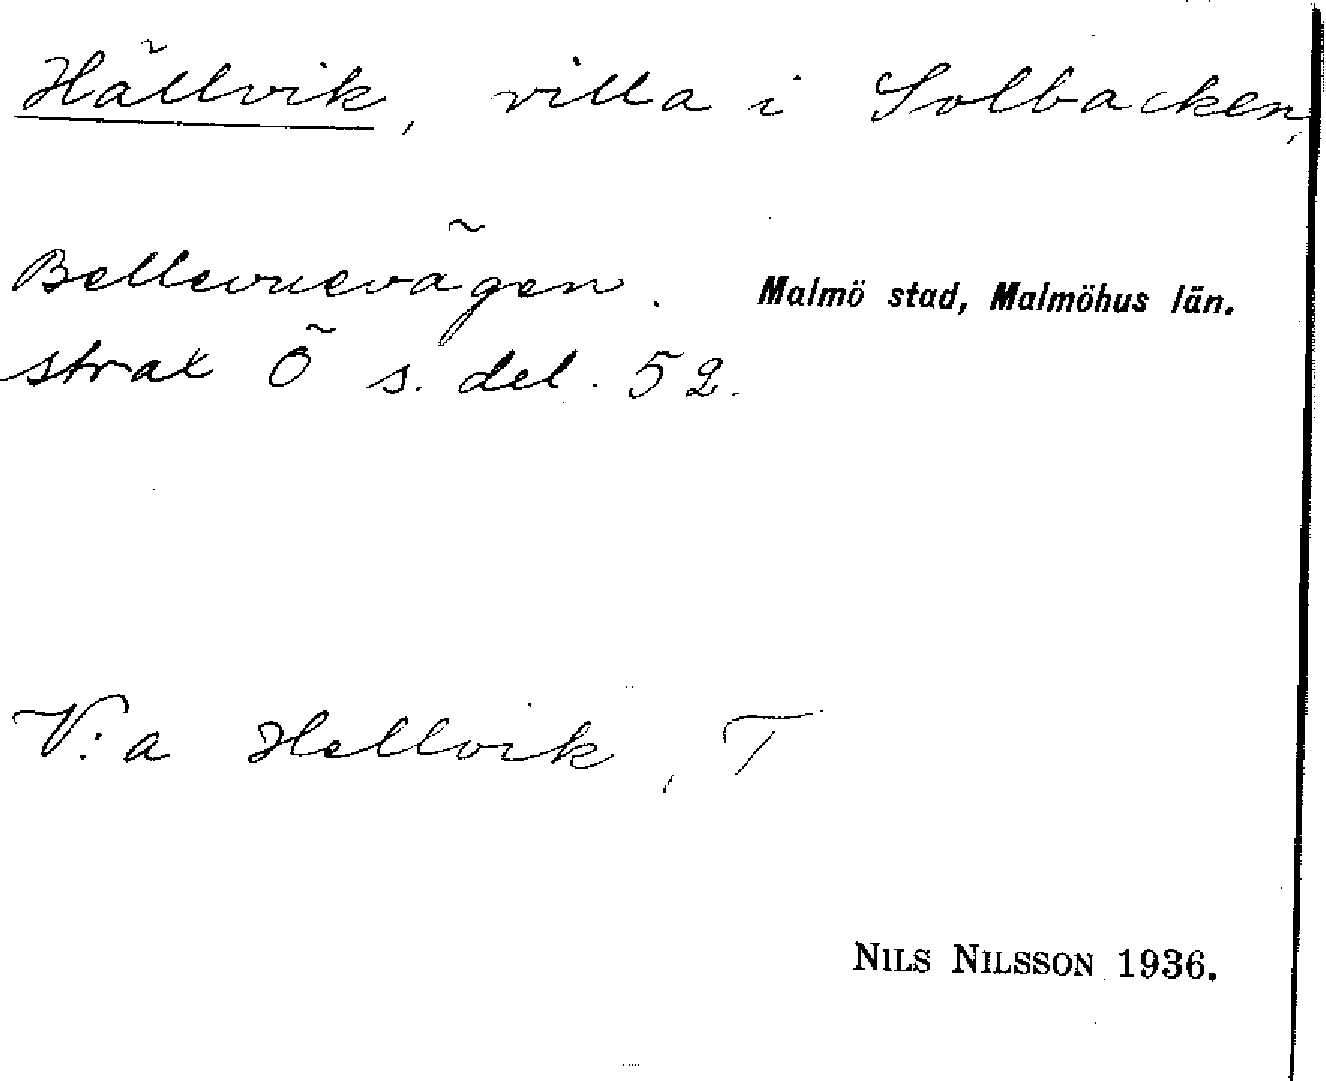 Hällvik, villa i Solbacken,
Bellevuevägen. Malmö stad, Malmöhus län.
strax Ö s. del. 52.
V:a Hellvik, T
NILS NILSSON 1936.